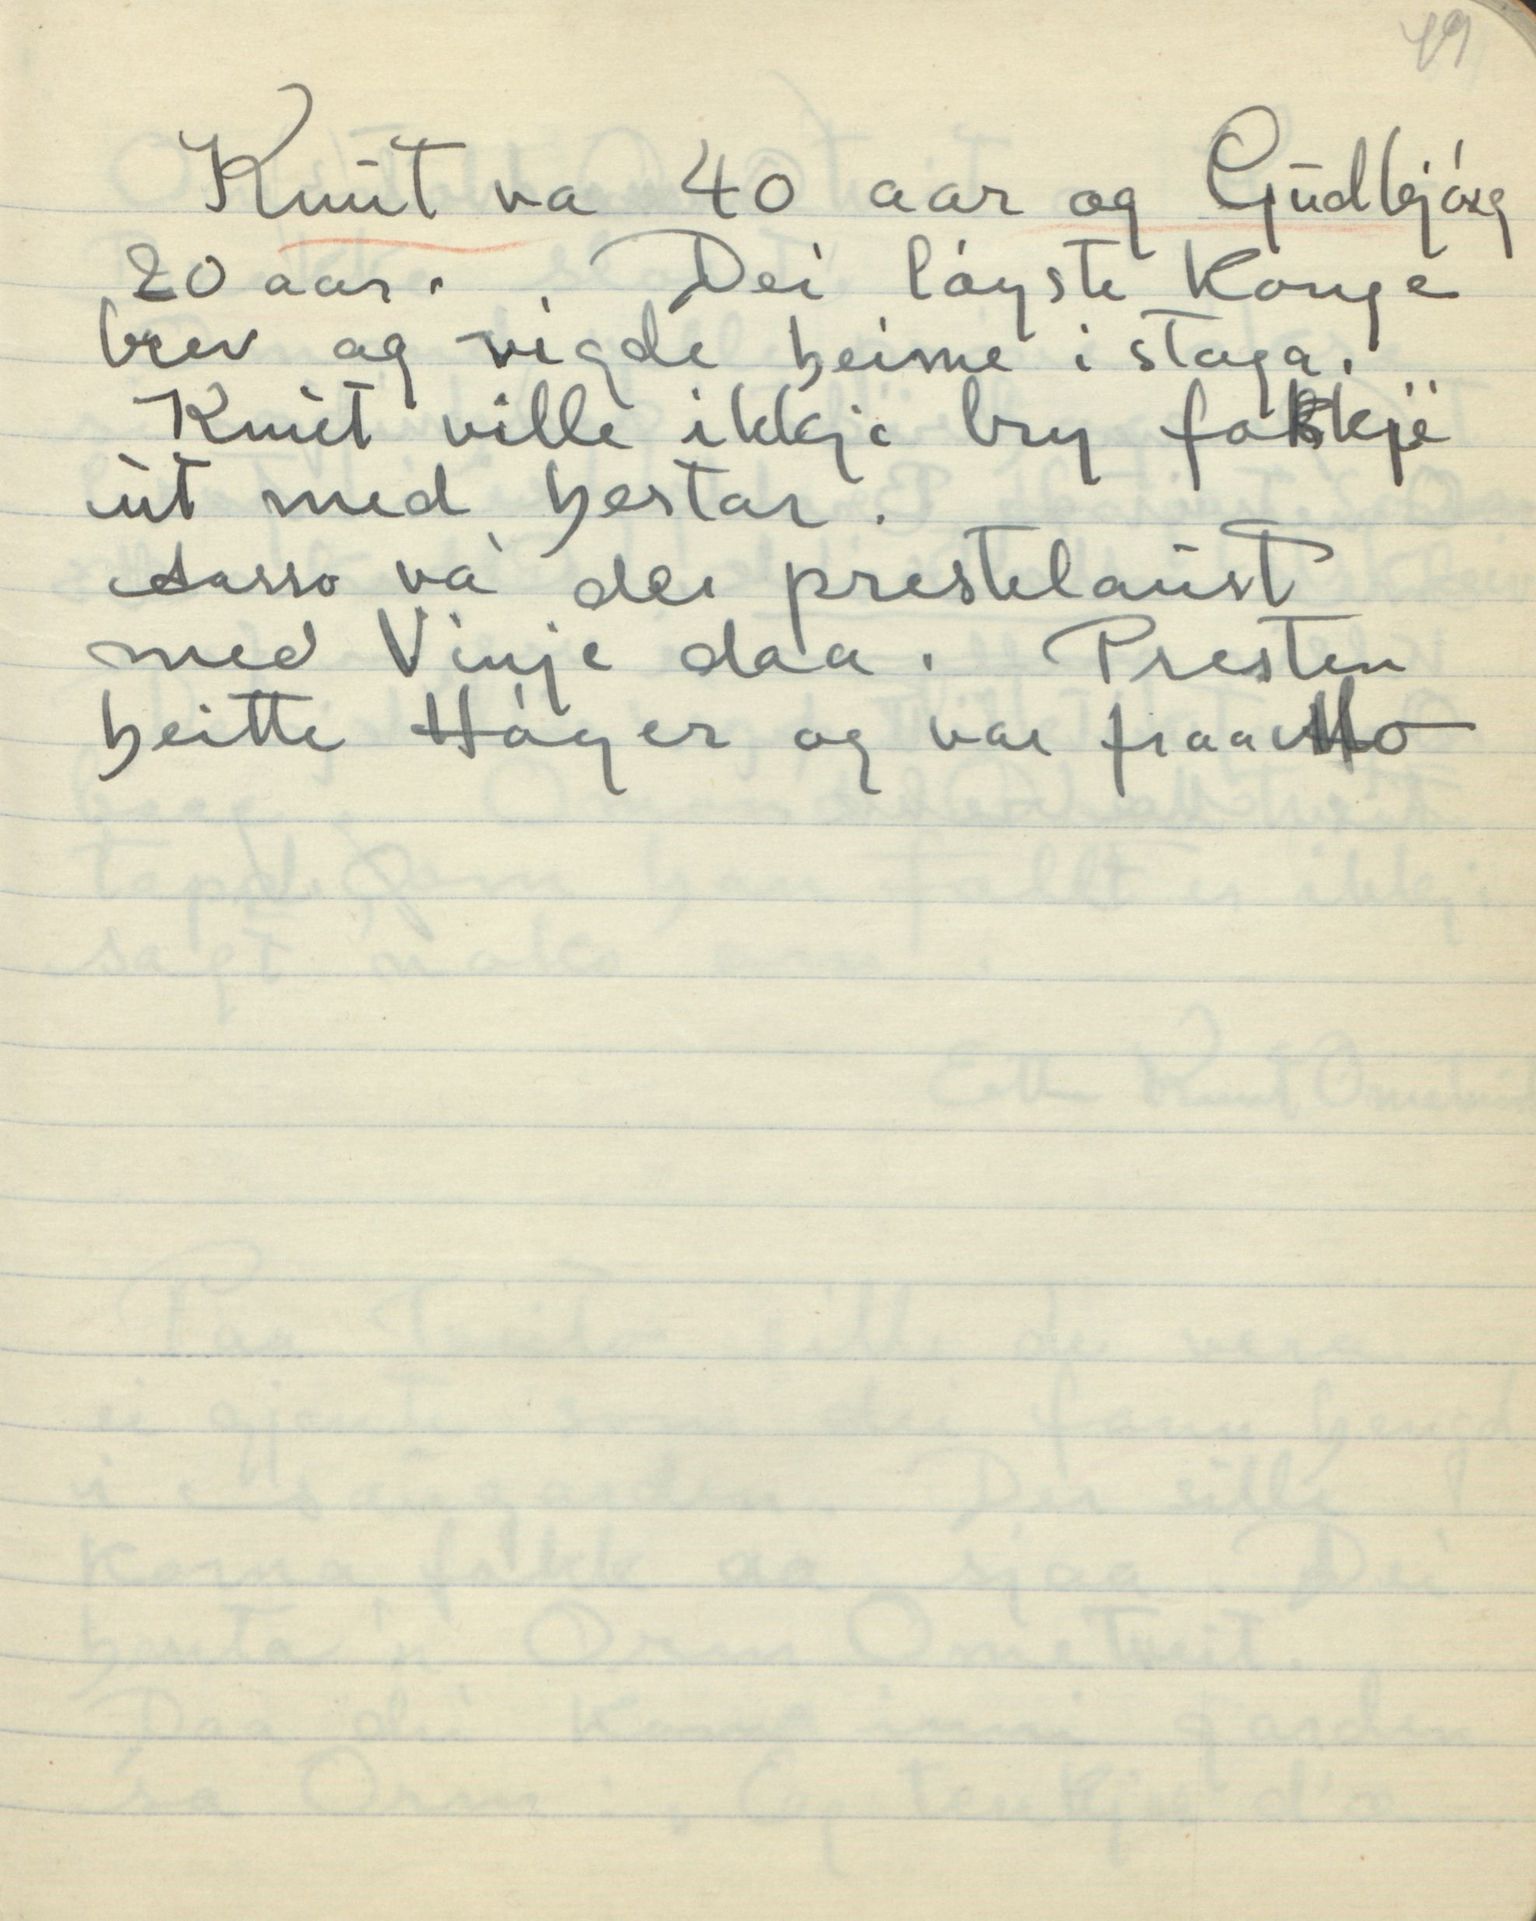 49
Knut va 40 aar og Gudbjórg
20 aar. Dei lóyste Konge
brev og vigde heime i stoga.
Knut ville ikkje bry folkje
ut med hestar.
va dei prestelaust
med Vinje daa. Presten
heitte Hóyer og var fraa Mo